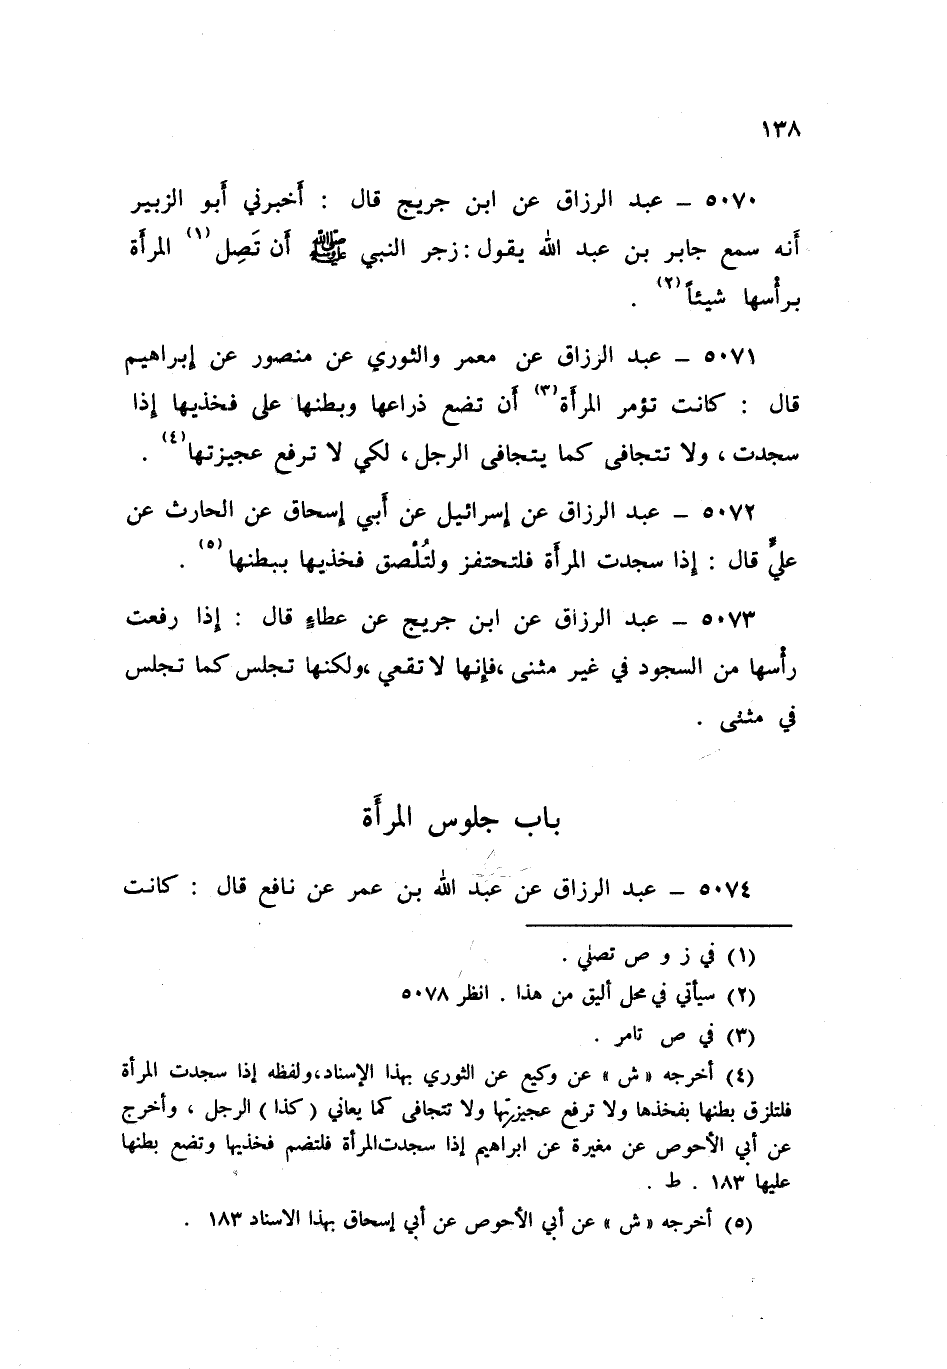 ١٣٨
٥٠٧٠ ـ عبد الرزاق عن ابن جريج قال : أخبرني أبو الزبير
أنه سمع جابر بن عبد الله يقول : زجر النبي ﷺ أن تَصِل (١) المرأة
برأسها شيئاً (٢) .
٥٠٧١ ـ عبد الرزاق عن معمر والثوري عن منصور عن إبراهيم
قال : كانت تؤمر المرأة (٣) أن تضع ذراعها وبطنها على فخذيها إذا
سجدت ، ولا تتجافى كما يتجافى الرجل ، لكي لا ترفع عجيزتها (٤) .
٥٠٧٢ ـ عبد الرزاق عن إسرائيل عن أبي إسحاق عن الحارث عن
عليٍّ قال : إذا سجدت المرأة فلتحتفز ولتُلْصق فخذيها ببطنها (٥) .
٥٠٧٣ ـ عبد الرزاق عن ابن جريج عن عطاءٍ قال : إذا رفعت
رأسها من السجود في غير مثنى ،فإنها لا تقعي ،ولكنها تجلس كما تجلس
في مثنى .
باب جلوس المرأة
٥٠٧٤ ـ عبد الرزاق عن عبد الله بن عمر عن نافع قال : كانت
(١) في ز و ص تصلي .
(٢) سيأتي في محل أليق من هذا . انظر ٥٠٧٨
(٣) في ص تامر .
(٤) أخرجه « ش » عن وكيع عن الثوري بهذا الإسناد،ولفظه إذا سجدت المرأة
فلتلزق بطنها بفخذها ولا ترفع عجيزتها ولا تتجافى كما يعاني ( كذا ) الرجل ، وأخرج
عن أبي الأحوص عن مغيرة عن ابراهيم إذا سجدت المرأة فلتضم فخذيها وتضع بطنها
عليها ١٨٣ . ط .
(٥) أخرجه « ش » عن أبي الأحوص عن أبي إسحاق بهذا الاسناد ١٨٣ .